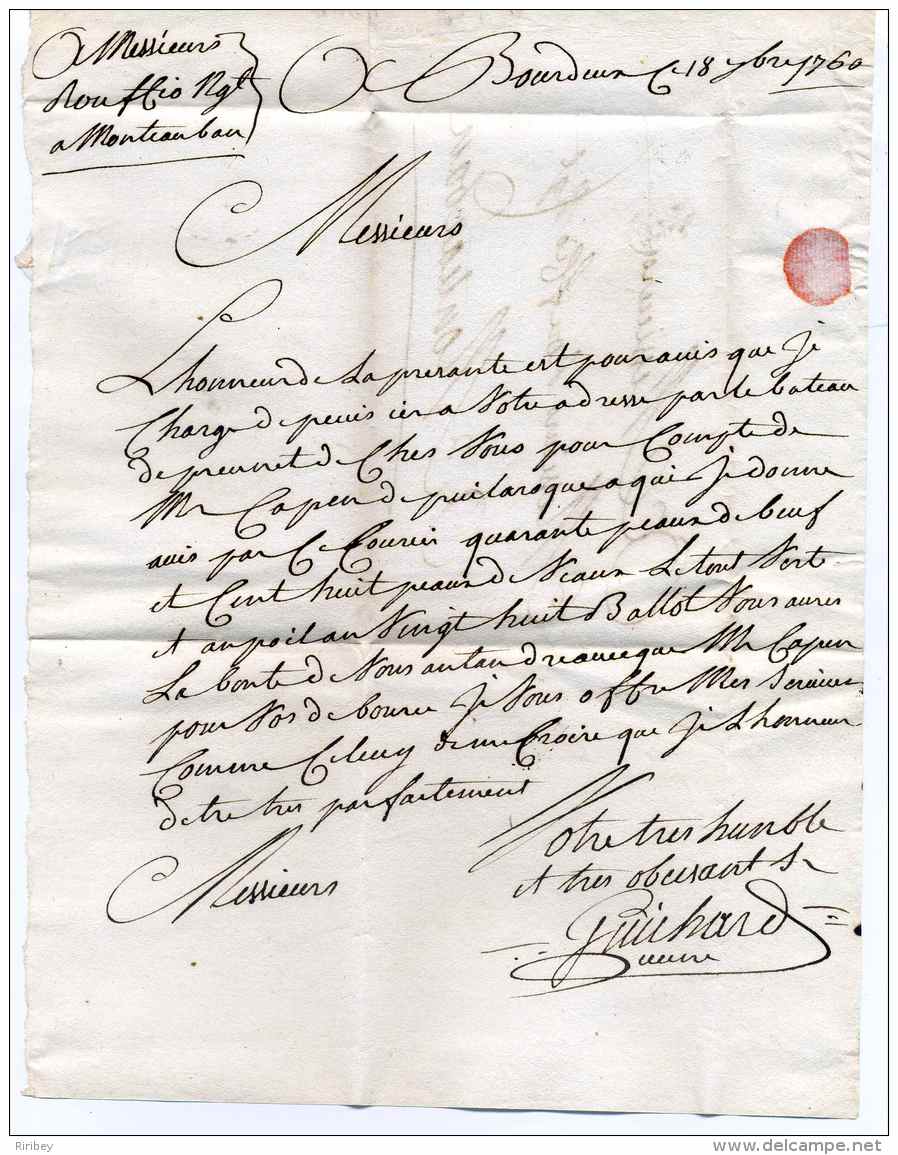 A Messieurs
Rouffio Ngt
a Montauban
A Bourdeux Ce 18 ybre 1760
Messieurs
Lhonneur de La presante est pour avis que Je
Charge depeuis ier a Votre adresse par le bateau
de preunet de Ches Vous pour Compte de
Mr Capen de puilaroque a qui Je donne
avis par Ce Courier quarante peaux de beuf
et Cent huit peaux de Veaux Le tout Vert
et au poil au Vingt huit Ballot Vous aures
La bonte de Vous antandre avec que Mr Capen
pour Vos debource Je Vous offre Mes Services
Comme Celuy de me Croire que Je L honneur
detre tres parfaitement
Messieurs
Votre tres humble
et tres obeisant Sr
Guichard
veuve
Riribey
www.delcampe.net